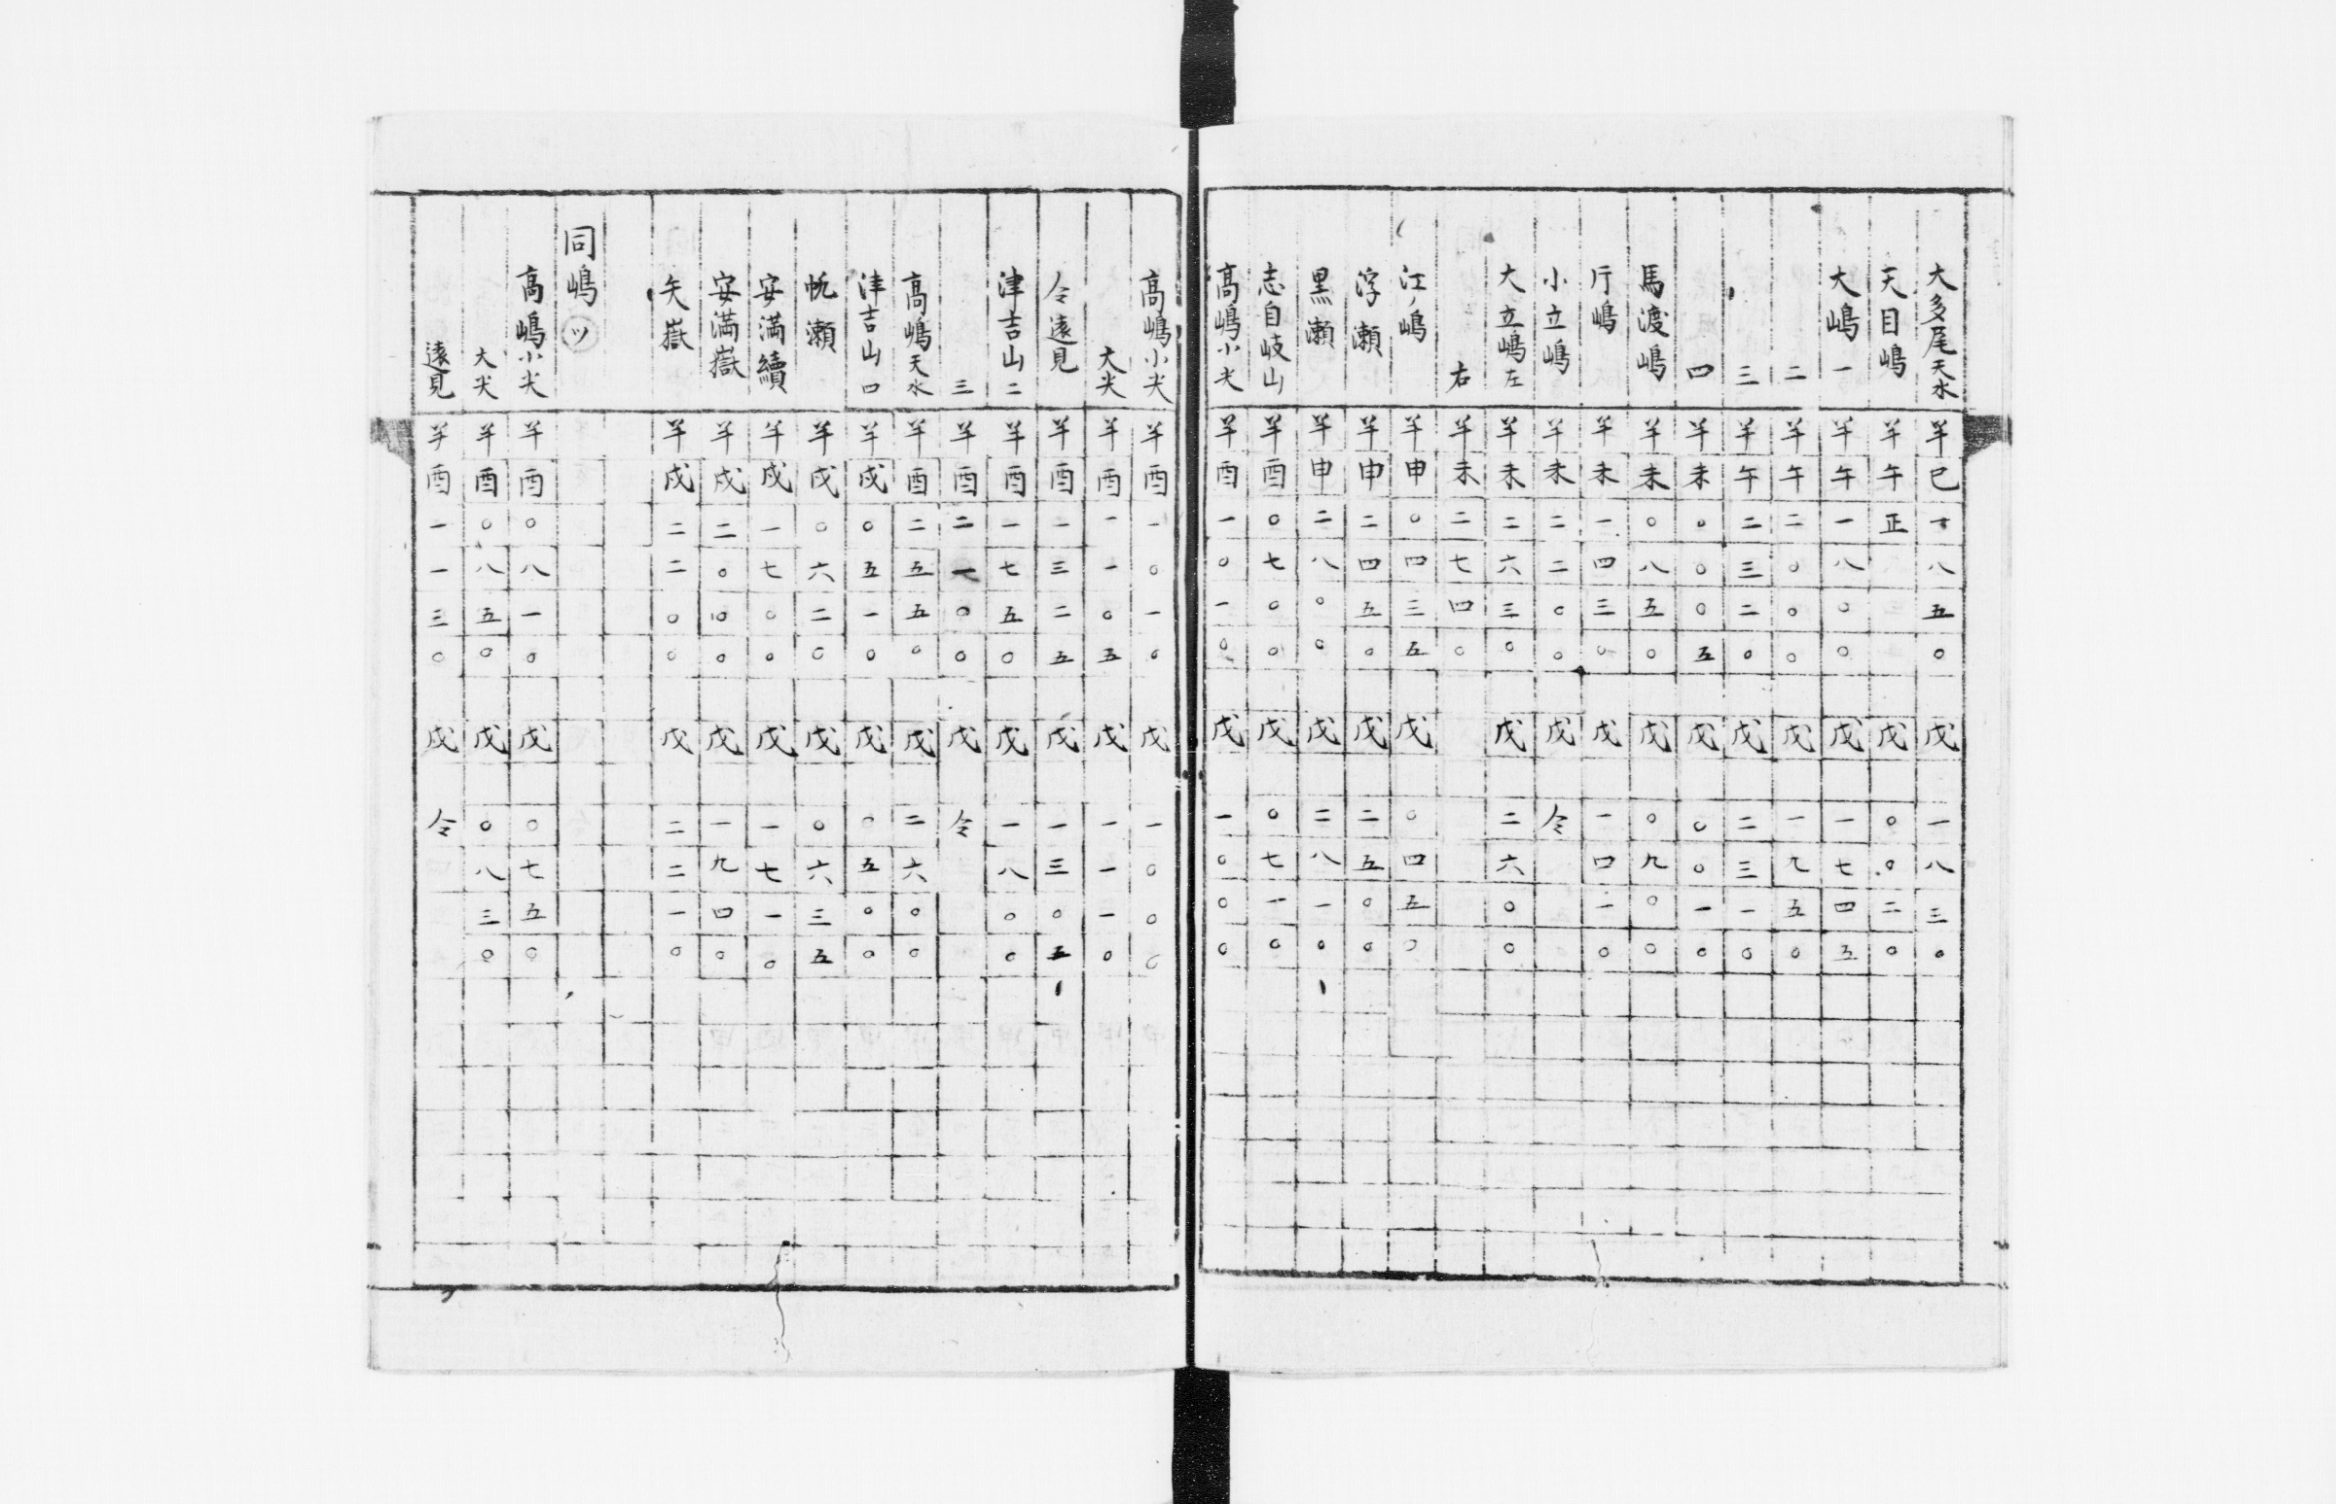 大多尾天水 羊 巳 一 八 五 〇 戊 一 八 三 〇
天目嶋 羊 午 正 戊 〇 〇 二 〇
大嶋一 羊 午 一 八 〇 〇 戊 一 七 四 五
二 羊 午 二 〇 〇 〇 戊 一 九 五 〇
三 羊 午 二 三 二 〇 戊 二 三 一 〇
四 羊 未 〇 〇 〇 五 戊 〇 〇 一 〇
馬渡嶋 羊 未 〇 八 五 〇 戊 〇 九 〇 〇
庁嶋 羊 未 一 四 三 〇 戊 一 四 一 〇
小立嶋 羊 未 二 二 〇 〇 戊 仝
大立嶋左 羊 未 二 六 三 〇 戊 二 六 〇 〇
右 羊 未 二 七 四 〇
江ノ嶋 羊 申 〇 四 三 五 戊 〇 四 五 〇
浮瀬 羊 申 二 四 五 〇 戊 二 五 〇 〇
黒瀬 羊 申 二 八 〇 〇 戊 二 八 一 〇
志自岐山 羊 酉 〇 七 〇 〇 戊 〇 七 一 〇
高嶋小尖 羊 酉 一 〇 一 〇 戊 一 〇 〇 〇
高嶋小尖 羊 酉 一 〇 一 〇 戊 一 〇 〇 〇
大尖 羊 酉 一 一 〇 五 戊 一 一 一 〇
仝遠見 羊 酉 一 三 二 五 戊 一 三 〇 五
津吉山二 羊 酉 一 七 五 〇 戊 一 八 〇 〇
三 羊 酉 二 一 〇 〇 戊 仝
高嶋天水 羊 酉 二 五 五 〇 戊 二 六 〇 〇
津吉山口 羊 戌 〇 五 一 〇 戊 〇 五 〇 〇
帆瀬 羊 戌 〇 六 二 〇 戊 〇 六 三 五
安満續 羊 戌 一 七 〇 〇 戊 一 七 一 〇
安満嶽 羊 戌 二 〇 〇 〇 戊 一 九 四 〇
矢嶽 羊 戌 二 二 〇 〇 戊 二 二 一 〇
同嶋ツ
高嶋小尖 羊 酉 〇 八 一 〇 戊 〇 七 五 〇
大尖 羊 酉 〇 八 五 〇 戊 〇 八 三 〇
遠見 羊 酉 一 一 三 〇 戊 仝